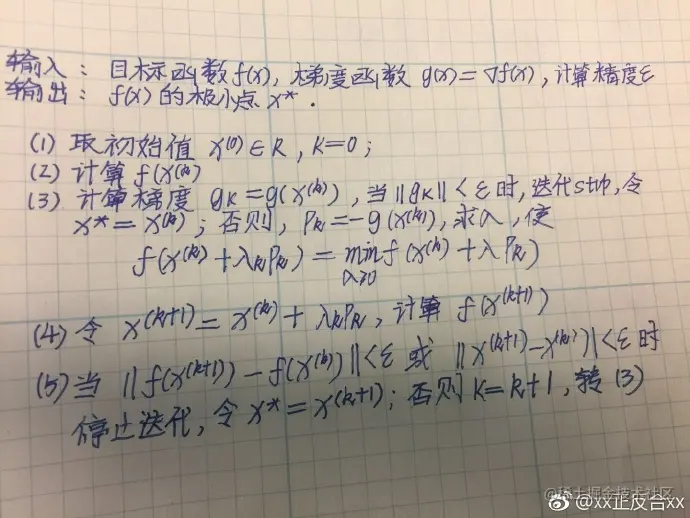 输入：目标函数f(x), 梯度函数 g(x)=∇f(x), 计算精度ε
输出：f(x)的极小点 x*.
(1) 取初始值 x⁽⁰⁾∈R, K=0;
(2) 计算 f(x⁽ᵏ⁾)
(3) 计算梯度 gₖ=g(x⁽ᵏ⁾), 当||gₖ||<ε时, 迭代stop, 令
x*=x⁽ᵏ⁾; 否则, Pₖ=-g(x⁽ᵏ⁾), 求λ, 使
f(x⁽ᵏ⁾+λₖPₖ)=min f(x⁽ᵏ⁾+λPₖ)
λ≥0
(4) 令 x⁽ᵏ⁺¹⁾=x⁽ᵏ⁾+λₖPₖ, 计算 f(x⁽ᵏ⁺¹⁾)
(5) 当 ||f(x⁽ᵏ⁺¹⁾)-f(x⁽ᵏ⁾)||<ε 或 ||x⁽ᵏ⁺¹⁾-x⁽ᵏ⁾||<ε时
停止迭代, 令 x*=x⁽ᵏ⁺¹⁾; 否则K=k+1, 转(3)
@稀土掘金技术社区
@xx正反合xx